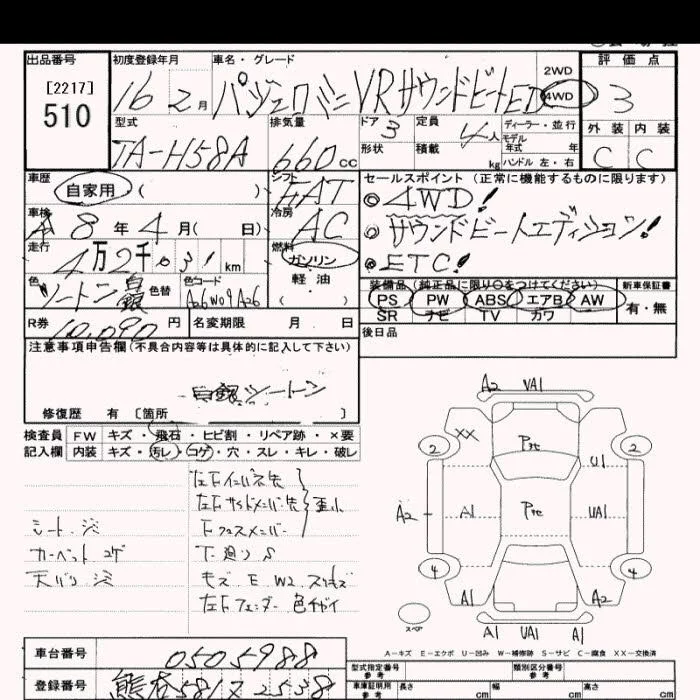 出品番号 初度登録年月 車名・グレード 評価点
[2217]
510
16 2月 パジェロミニ VRサウンドビートED 2WD 4WD 3
型式 排気量 ドア 3 定員 4人 ディーラー・並行 外装 内装
TA-H58A 660cc 形状 積載 kg モデル年式 年 ハンドル 左・右 C C
車歴 シフト セールスポイント (正常に機能するものに限ります)
自家用 ( ) FAT ◎4WD!
車検 冷房 ◎サウンドビートエディション!
8年4月( 日) AC ◎ETC!
走行 燃料
4万2千031km ガソリン 軽油
色 色替 色コード 装備品(純正品に限り○をつけてください) 新車保証書
ツートン A26W09A26 PS PW ABS エアB AW 有・無
SR ナビ TV カワ
R券 10,090円 名変期限 月 日 後日品
注意事項申告欄(不具合内容等は具体的に記入して下さい)
白銀ツートン
修復歴 有 [箇所 ]
検査員 FW キズ・飛石・ヒビ割・リペア跡・×要
記入欄 内装 キズ・汚レ・コゲ・穴・スレ・キレ・破レ
左Fインパネ先
左Fサイドメンバー先 歪小
シート.ジ Fクロスメンバー
カーペット コゲ 下廻りS
天バリ ジ キズ E W2 スリキズ
左Fフェンダー 色チガイ
A2 VA1
2 XX Pテc 2
U1
A2 A1 Pテc UA1
4 4
A1 A2
スペア A1 UA1 A1
A－キズ E－エクボ U－凹み W－補修跡 S－サビ C－腐食 XX－交換済
車台番号 0505988 型式指定番号 参考 類別区分番号 参考
登録番号 熊本581 2538 車庫証明用 参考 長さ cm 幅 cm 高さ cm